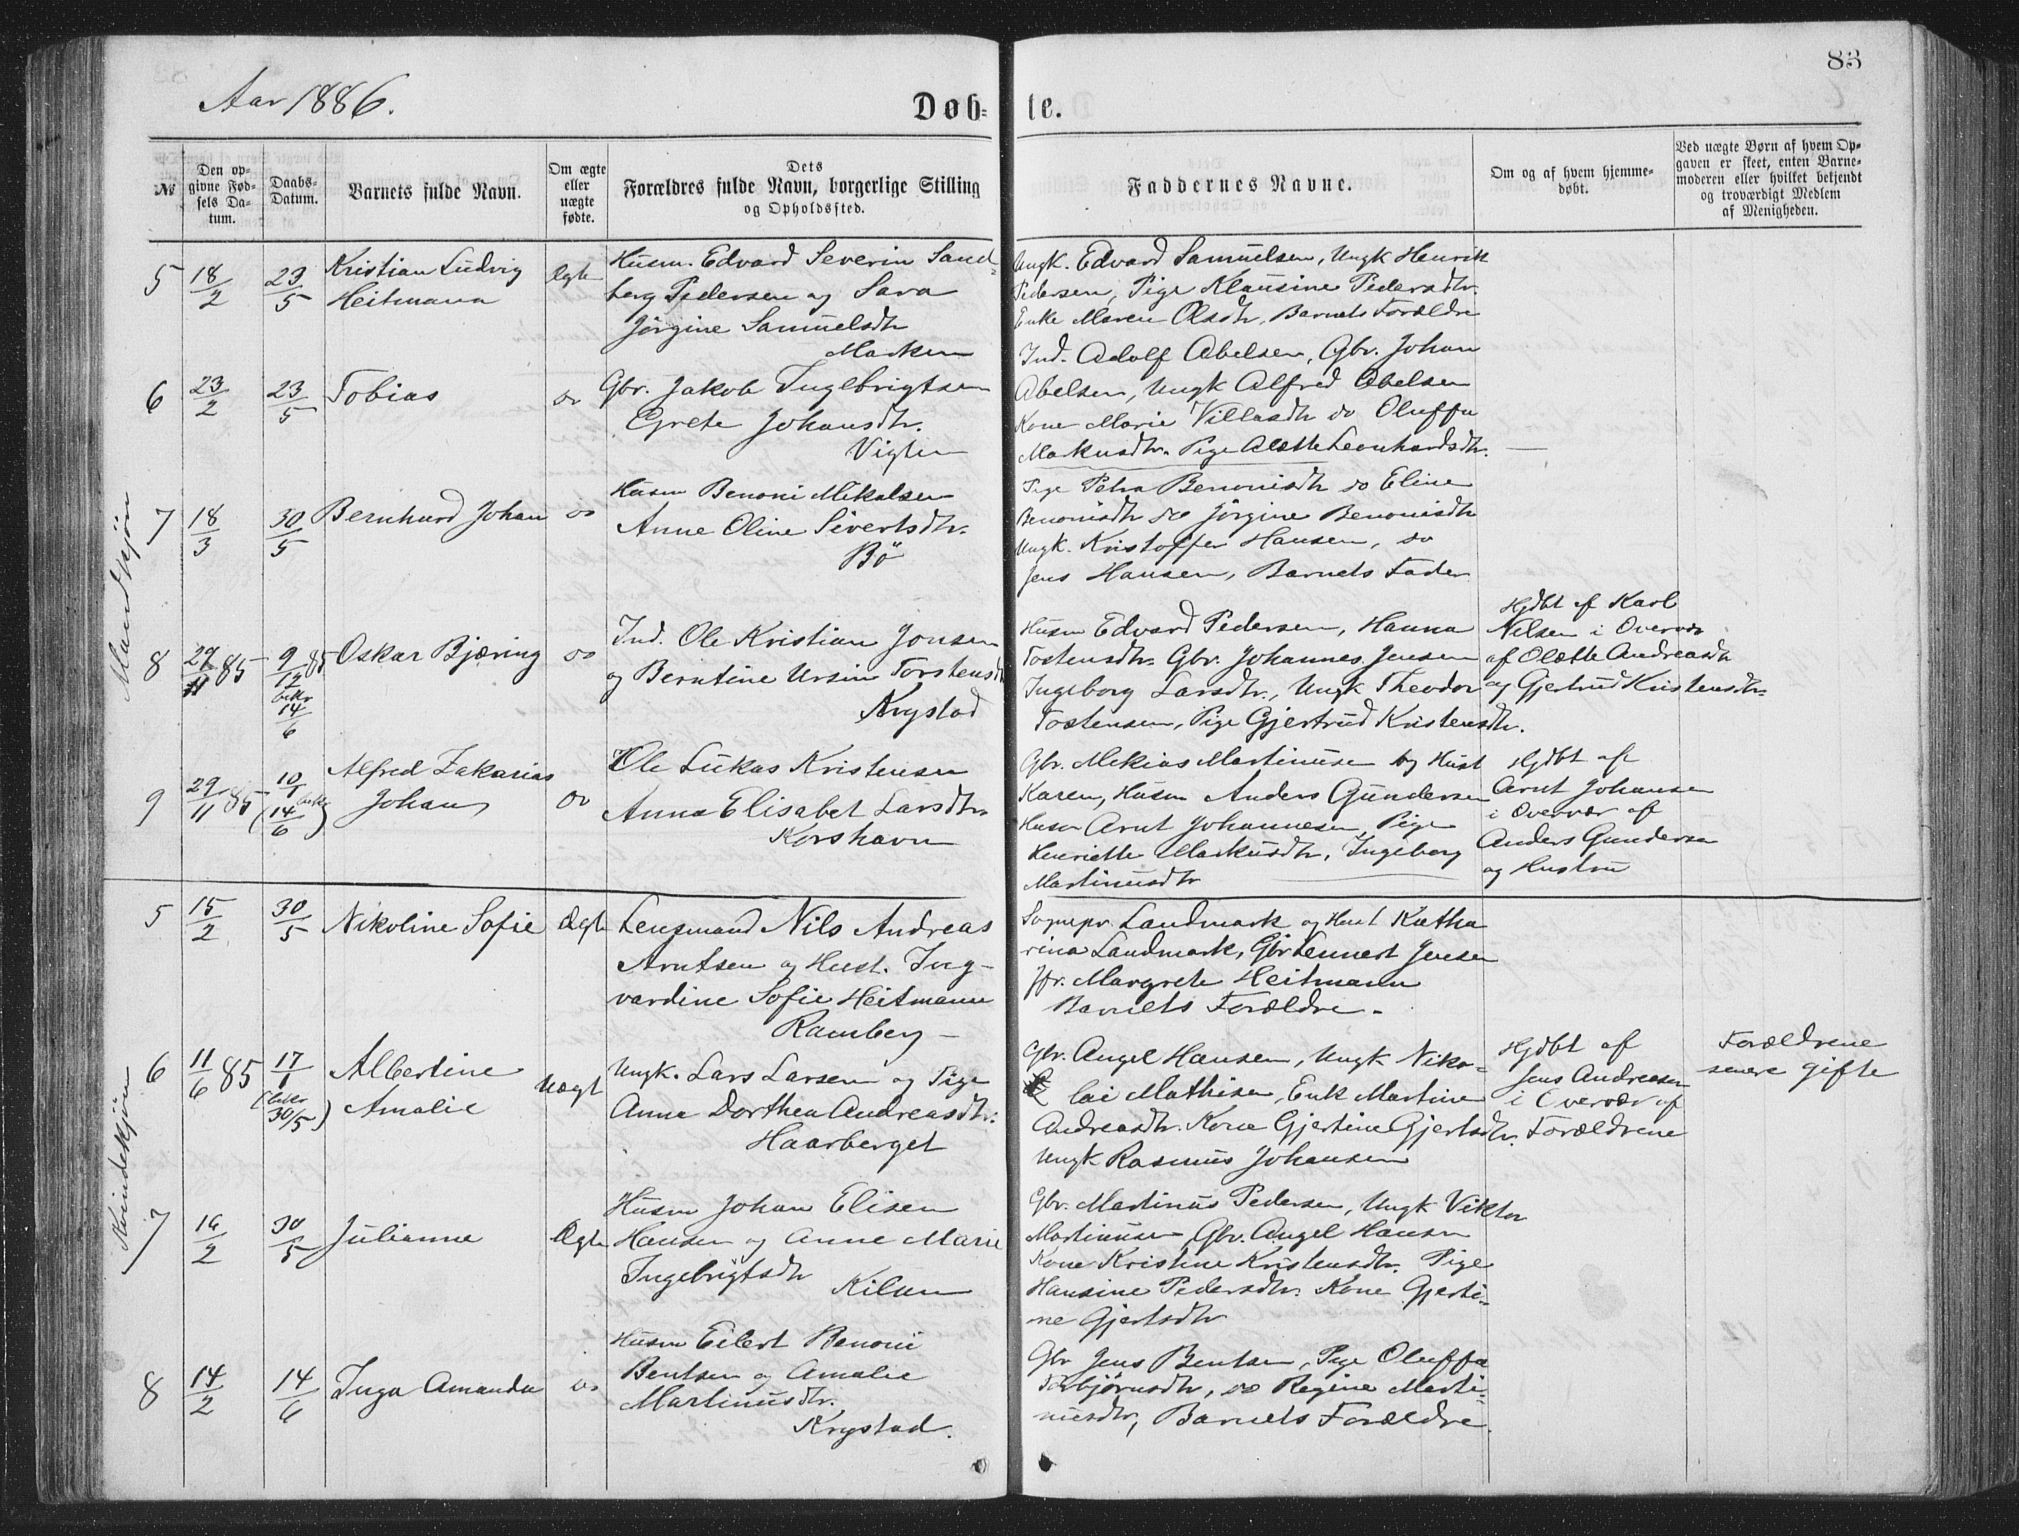 83
Aar 1886.
Døb- te.
№
Den op-
givne Fød-
sels Da-
tum.
Daabs-
Datum.
Barnets fulde Navn.
Om ægte
eller
uægte
fødte.
Dets
Forældres fulde Navn, borgerlige Stilling
og Opholdssted.
Faddernes Navne.
Om og af hvem hjemme-
døbt.
Ved uægte Børn af hvem Op-
gaven er skeet, enten Barne-
moderen eller hvilket bekjendt
og troværdigt Medlem
af Menigheden.
Mandkjøn
5 18/2 23/5 Kristian Ludvig
Heitmann
Ægte
Husm. Edvard Severin Sand-
berg Pedersen og Sara
Jørgine Samuelsdtr
Marken
Ungk. Edvard Samuelsen, Ungk Henrik
Pedersen, Pige Klausine Pedersdtr.
Enke Maren Olsdtr, Barnets Forældre
6 23/2 23/5 Tobias
do
Gbr. Jakob Ingebrigtsen
Grete Johansdtr.
Vigten
Ind. Adolf Abelsen, Gbr. Johan
Abelsen, Ungk Alfred Abelsen
Kone Marie Villasdtr do Oluffa
Markusdtr. Pige Alætte Leonhardsdtr.
7 18/3 30/5 Bernhard Johan
do
Husm Benoni Mikalsen
Anne Oline Sivertsdtr.
Bö
Pige Petra Benonisdtr do Eline
Benonisdtr do Jörgine Benonisdtr
Ungk. Kristoffer Hansen, do
Jens Hansen, Barnets Fader
8 29/11 85 9/12 85 bekr 14/6 Oskar Bjæring
do
Ind. Ole Kristian Jonsen
og Berntine Ursin Torstensdtr
Krystad
Husm Edvard Pedersen, Hanna
Tostensdtr. Gbr. Johannes Jensen
Ingeborg Larsdtr., Ungk Theodor
Tostensen, Pige Gjertrud Kristensdtr.
Hjdbt af Karl
Nilsen i Overvær
af Olætte Andreasdtr
og Gjertrud Kristensdtr.
9 29/11 85 10/1 (bekr 14/6) Alfred Zakarias
Johan
do
Ole Lukas Kristensen
Anna Elisabet Larsdtr
Korshavn
Gbr. Mekias Martinusen og Hust
Karen, Husm Anders Gundersen
Husm Arnt Johannesen, Pige
Henriette Markusdtr, Ingeborg
Martinusdtr
Hjdbt af
Arnt Johansen
i Overvær af
Anders Gundersen
og Hustru
Kvindekjøn
5 15/2 30/5 Nikoline Sofie
Ægte
Lensmand Nils Andreas
Arntsen og Hust. Ing-
vardine Sofie Heitmann
Ramberg
Sognepr. Landmark og Hust Katha
rina Landmark, Gbr Lennert Jensen
Jfr. Margrete Heitmann
Barnets Forældre.
6 11/6 85 17/1 (bekr 30/5) Albertine
Amalie
Uægt
Ungk. Lars Larsen og Pige
Anne Dorthea Andreasdtr.
Haarberget
Gbr. Angel Hansen, Ungk Niko-
lai Mathisen, Enk Martine
Andreasdtr. Kone Gjertine Gjertsdtr.
Ungk Rasmus Johansen
Hjdbt af
Jens Andreasen
i Overvær af
Forældrene
Forældrene
senere gifte
7 16/2 30/5 Julianne
Ægte
Husm Johan Elisen
Hansen og Anne Marie
Ingebrigtsdtr
Kilan
Gbr. Martinus Pedersen, Ungk Viktor
Martinusen, Gbr. Angel Hansen
Kone Kristine Kristensdtr. Pige
Hansine Pedersdtr. Kone Gjerti-
ne Gjertsdtr
8 14/2 14/6 Inga Amanda
do
Husm Eilert Benoni
Bentsen og Amalie
Martinusdtr.
Krystad.
Gbr Jens Bentsen, Pige Oluffa
Torbjörnsdtr, do Regine Marti-
nusdtr, Barnets Forældre.